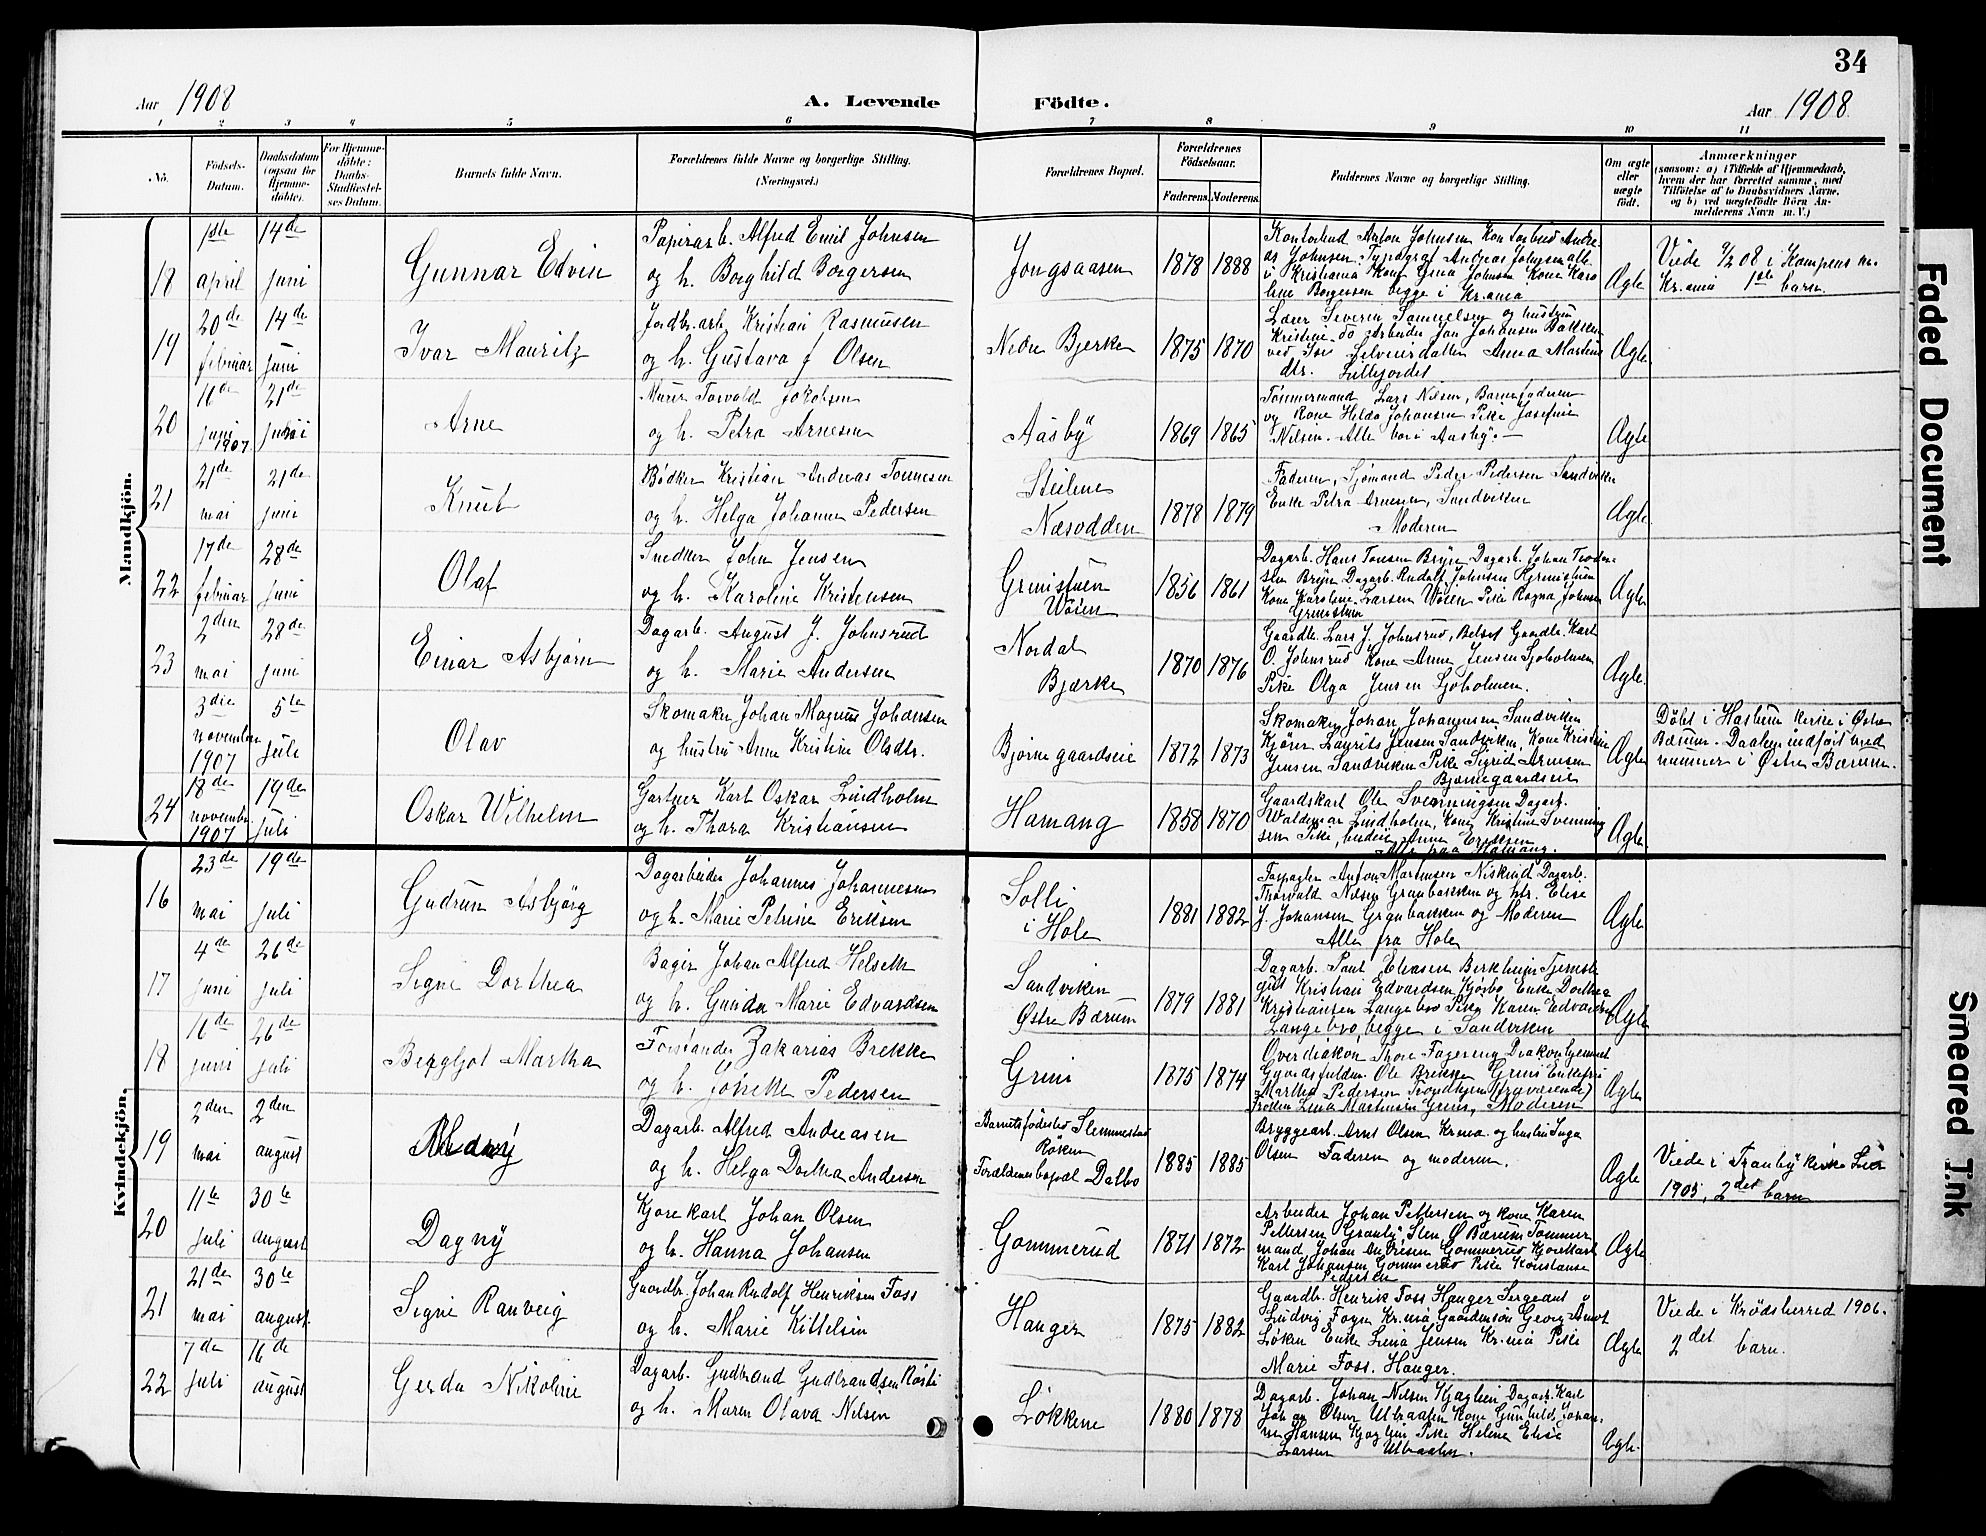 34
Aar 1908
A. Levende
Födte.
Aar 1908.
1 2 3 4 5 6 7 8 9 10 11
No.
Födsels-
Datum.
Daabsdatum
(ogsaa for
Hjemme-
döbte).
For Hjemme-
döbte:
Daabs-
Stadfæstel-
ses Datum.
Barnets fulde Navn.
Forældrenes fulde Navne og borgerlige Stilling.
(Næringsvei.)
Forældrenes Bopæl.
Forældrenes
Födselsaar.
Faderens. Moderens.
Faddernes Navne og borgerlige Stilling.
Om ægte
eller
uægte
födt.
Anmærkninger
(saasom: a) i Tilfælde af Hjemmedaab,
hvem der har forrettet samme, med
Tilföielse af to Daabsvidners Navne,
og b) ved uægtefödte Börn An-
melderens Navn m. V.)
Mandkjön.
18
1ste
april
14de
juni
Gunnar Edvin
Papirarb. Alfred Emil Johnsen
og h. Borghild Borgersen
Jongsaasen
1878 1888
Kontorbud Anton Johnsen Kontorbud Andre-
as Johnsen Typograf Andreas Johnsen alle
i Kristiania Kone Lina Johnsen Kone Karo
line Borgersen begge i Kr.ania
Ægte
08 i Kampens
Kr.ania 1ste barn.
19
20de
februar
14de
juni
Ivar Mauritz
Jordbr.arb. Kristian Rasmusen
og h. Gustava f Olsen
Nedre Bjerke
1875 1870
Severin Samuelsen og hustru
Kristine do Arbeider Jan Johansen Bakken
Anna Martins
dtr. Lillejordet
Ægte
20
juni
1907
21de
juni
Arne
Murer Torvald Jakobsen
og h. Petra Arnesen
Aasby
1869 1865
Tømmermand Lars Nilsen, Barnefaderen
og Kone Helda Johansen Pike Josefine
Nilsen. Alle bor i Aasby. —
Ægte
21
21de
mai
21de
juni
Knut
Bødker Kristian Andreas Tønnesen
og h. Helga Johanne Pedersen
Steilene
Næsodden
1878 1879
Faderen, Sjømand Peder Pedersen Sandviken
Enke Petra Arnesen, Sandviken
Moderen
Ægte
22
17de
februar
28de
juni
Olaf
Snedker John Jensen
og h. Karoline Kristensen
Grinistuen
Wøien
1856 1861
Dagarb. Hans Tonsen Bryn Dagarb. Johan
sen Bryn Dagarb. Rudolf Johnsen
Kone Karoline Larsen Wøien Pike Ragna Johnsen
Grinistuen
Ægte
23
2den
mai
28de
juni
Einar Asbjørn
Dagarb. August J. Johnsrud
og h. Marie Andersen
Nordal
Bjærke
1870 1876
Gaardbr. Lars J. Johnsrud, Belset Gaardbr. Karl
O. Johnsrud Kone Anne Jensen Sjøholmen
Pike Olga Jensen Sjøholmen.
Ægte
3die
november
1907
5te
juli
Olav
Skomaker Johan Magnus Johansen
og hustru Anne Kristine Olsdtr.
Bjørnegaardseie
1872 1873
Skomaker Johan Johannesen Sandviken
Kjører Laurits Jensen Sandviken, Kone Kristine
Jensen Sandviken Pike Sigrid Arnesen
Bjørnegaardseie
Ægte
Døbt i Haslum kirke i Østre
Bærum. Daaben indført med
nummer i Østre Bærum.
24
18de
november
1907
19de
juli
Oskar Wilhelm
Gartner Karl Oskar Lindholm
og h. Thora Kristiansen
Hamang
1858 1870
Gaardskarl Ole Svenningsen Dagarb.
Waldemar Lindholm, Kone Kristine Svenning
sen Pike, Anne Eriksen
Alle fra Hamang.
Ægte
Kvindekjön.
16
23de
mai
19de
juli
Gudrun Asbjørg
Dagarbeider Johannes Johannesen
og h. Marie Petrine Eriksen
Solli
i Hole
1881 1882
Forpagter Anton Martinsen Niskind Dagarb.
Thorvald Næsen Granbakken og htr. Elise
J. Johansen Granbakken og Moderen
Alle fra Hole
Ægte
17
4de
juni
26de
juli
Signe Dorthea
Bager Johan Alfred Helseth
og h. Gunda Marie Edvardsen
Sandviken
Østre Bærum
1879 1881
Dagarb. Paul Eliasen Berkheim Tjenest
gut Kristian Edvardsen Kjørbo Enke Dorthea
Kristiansen Langebro Pike Karen Edvardsen
Langebro, begge i Sandviken
Ægte
18
16de
juni
26de
juli
Bergljot Martha
Forstander Zakarias Brekke
og h. Pedersen
Grini
1875 1874
Overdiakon Thore Fagereng Diakonhjemmet
Ole Brekke Grini Enkefru
Martha Pedersen Trondhjem (fraværende)
Frøken Lina Martinsen Grini, Moderen
Ægte
19
2den
mai
2den
august
Dagarb. Alfred Andreasen
og h. Helga Dorthea Andersen
Barnets fødested Slemmestad
Røken
Forældrenes bopæl Dalbo
1885 1885
Bryggearb. Arnt Olsen Kr.ania og hustru Inga
Olsen Faderen og moderen.
Ægte
Viede i Tranby kirke Lier
1905, 2det barn
20
11te
juli
30te
august
Dagny
Kjørekarl Johan Olsen
og h. Hanna Johansen
Gommerud
1871 1872
Arbeider Johan Pettersen og Kone Karen
Pettersen Granby Ø. Bærum Tømmer
mand Johan Gommerud Kjørekarl
Karl Johansen Gommerud Pike Konstanse
Pedersen
Ægte
21
21de
mai
30te
august.
Signe Ranveig
Gaardbr. Johan Rudolf Henriksen Foss
og h. Marie Kittelsen
Hanger
1875 1882
Gaardbr. Henrik Foss Hanger Sergeant
Ludvig Kr.ania Georg
Løken Enke Lina Jensen Kr.ania Pike
Marie Foss. Hanger.
Ægte
Viede i Krødsherred 1906.
2det barn.
22
7de
juli
16de
august
Gerda Nikoline
Dagarb. Gudbrand Gudbrandsen
og h. Maren Olava Nilsen
Løkkene
1880 1878
Dagarb. Johan Nilsen Kjaglien Dagarb. Karl
Johan Olsen Kone Gunhild Johan-
ne Hansen Kjaglien Pike Helene Elise
Larsen
Ægte.
Faded Document
Smeared Ink